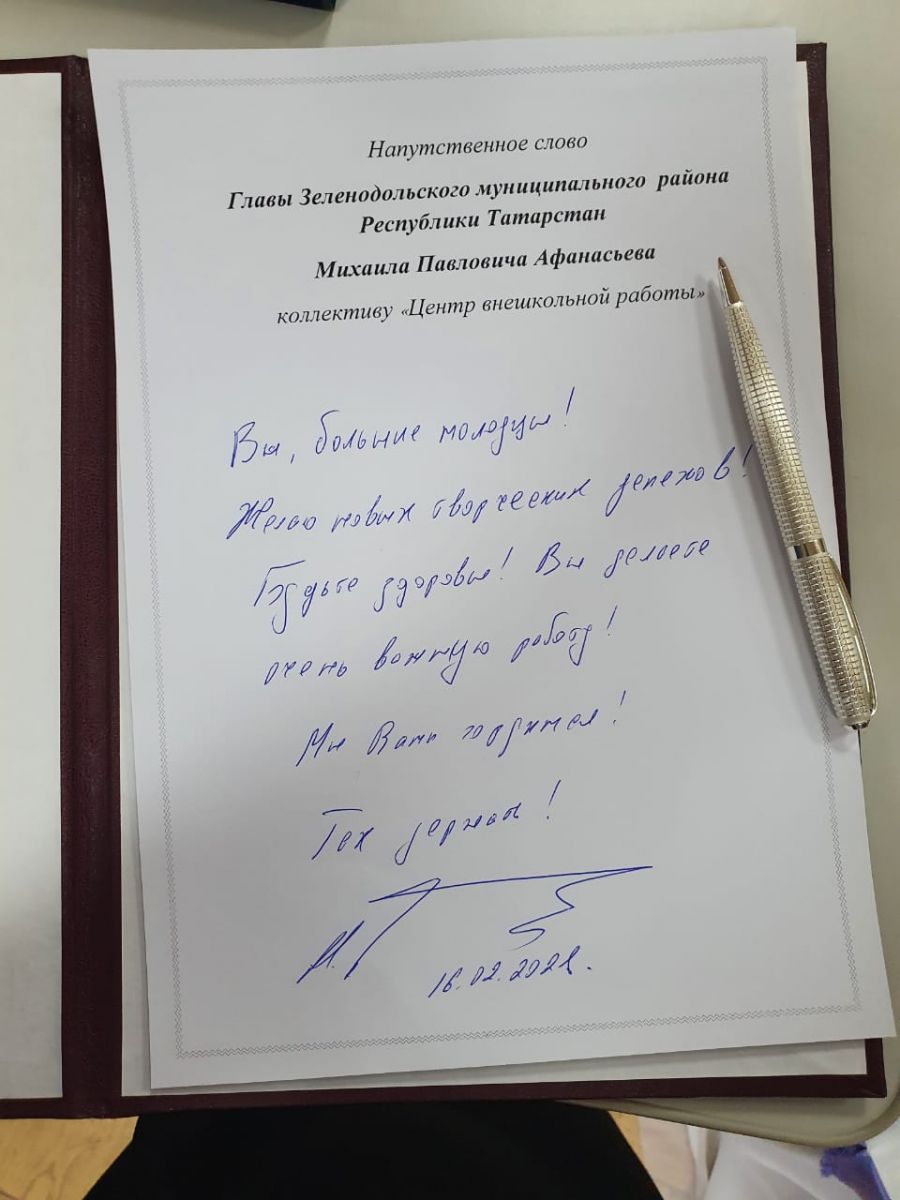 Напутственное слово
Главы Зеленодольского муниципального района
Республики Татарстан
Михаила Павловича Афанасьева
коллективу «Центр внешкольной работы»
Вы, большие молодцы!
Желаю новых творческих успехов!
Будьте здоровы! Вы делаете
очень важную работу!
Мы Вами гордимся!
Так держать!
16.02.2021.